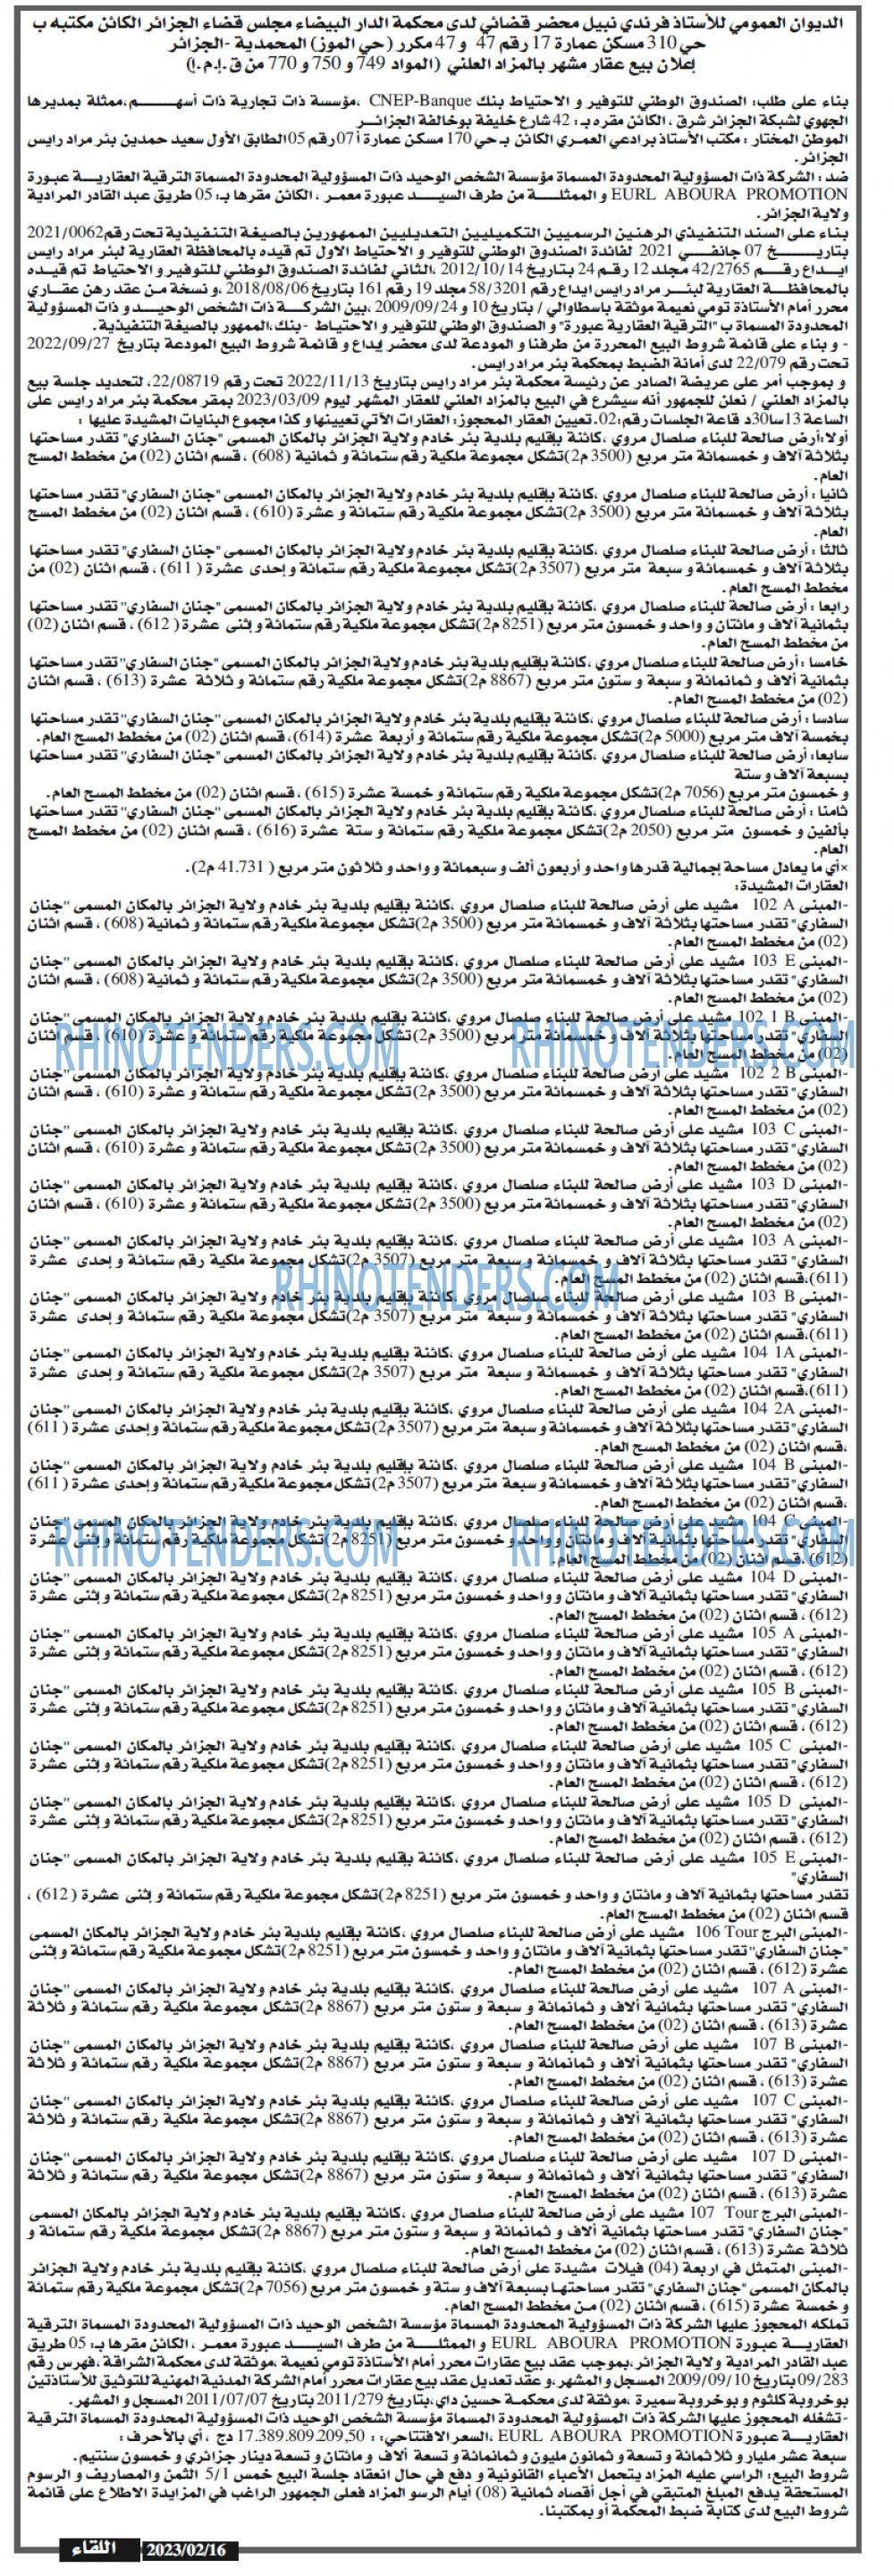 الديوان العمومي للأستاذ فرندي نبيل محضر قضائي لدى محكمة الدار البيضاء مجلس قضاء الجزائر الكائن مكتبه ب
حي 310 مسكن عمارة 17 رقم 47 و 47 مكرر (حي الموز) المحمدية -الجزائر
إعلان بيع عقار مشهر بالمزاد العلني (المواد 749 و 750 و 770 من ق.إ.م.إ)
بناء على طلب: الصندوق الوطني للتوفير و الاحتياط بنك CNEP-Banque ،مؤسسة ذات تجارية ذات أسهم،ممثلة بمديرها
الجهوي لشبكة الجزائر شرق ، الكائن مقره بـ : 42 شارع خليفة بوخالفة الجزائر
الموطن المختار : مكتب الأستاذ برادعي العمري الكائن بـ حي 170 مسكن عمارة أ 07 رقم 05 الطابق الأول سعيد حمدين بئر مراد رايس
الجزائر.
ضد : الشركة ذات المسؤولية المحدودة المسماة مؤسسة الشخص الوحيد ذات المسؤولية المحدودة المسماة الترقية العقارية عبورة
EURL ABOURA PROMOTION و الممثلة من طرف السيد عبورة معمر ، الكائن مقرها بـ: 05 طريق عبد القادر المرادية
ولاية الجزائر.
بناء على السند التنفيذي الرهنين الرسميين التكميليين التعديليين الممهورين بالصيغة التنفيذية تحت رقم 2021/0062
بتاريخ 07 جانفي 2021 لفائدة الصندوق الوطني للتوفير و الاحتياط الاول تم قيده بالمحافظة العقارية لبئر مراد رايس
ايداع رقم 42/2765 مجلد 12 رقم 24 بتاريخ 2012/10/14 ،الثاني لفائدة الصندوق الوطني للتوفير و الاحتياط تم قيده
بالمحافظة العقارية لبئر مراد رايس ايداع رقم 58/3201 مجلد 19 رقم 161 بتاريخ 2018/08/06 ،و نسخة من عقد رهن عقاري
محرر أمام الأستاذة تومي نعيمة موثقة باسطاوالي / بتاريخ 10 و 2009/09/24 ،بين الشركة ذات الشخص الوحيد و ذات المسؤولية
المحدودة المسماة ب "الترقية العقارية عبورة" و الصندوق الوطني للتوفير و الاحتياط -بنك،الممهور بالصيغة التنفيذية.
- و بناء على قائمة شروط البيع المحررة من طرفنا و المودعة لدى محضر إيداع و قائمة شروط البيع المودعة بتاريخ 2022/09/27
تحت رقم 22/079 لدى أمانة الضبط بمحكمة بئر مراد رايس.
و بموجب أمر على عريضة الصادر عن رئيسة محكمة بئر مراد رايس بتاريخ 2022/11/13 تحت رقم 22/08719، لتحديد جلسة بيع
بالمزاد العلني / نعلن للجمهور أنه سيشرع في البيع بالمزاد العلني للعقار المشهر ليوم 2023/03/09 بمقر محكمة بئر مراد رايس على
الساعة 13سا30د قاعة الجلسات رقم:02. تعيين العقار المحجوز: العقارات الآتي تعيينها و كذا مجموع البنايات المشيدة عليها :
أولا:أرض صالحة للبناء صلصال مروي ،كائنة بإقليم بلدية بئر خادم ولاية الجزائر بالمكان المسمى "جنان السفاري" تقدر مساحتها
بثلاثة آلاف و خمسمائة متر مربع (3500 م2)تشكل مجموعة ملكية رقم ستمائة و ثمانية (608) ، قسم اثنان (02) من مخطط المسح
العام.
ثانيا : أرض صالحة للبناء صلصال مروي ،كائنة بإقليم بلدية بئر خادم ولاية الجزائر بالمكان المسمى "جنان السفاري" تقدر مساحتها
بثلاثة آلاف و خمسمائة متر مربع (3500 م2)تشكل مجموعة ملكية رقم ستمائة و عشرة (610) ، قسم اثنان (02) من مخطط المسح
العام.
ثالثا : أرض صالحة للبناء صلصال مروي ،كائنة بإقليم بلدية بئر خادم ولاية الجزائر بالمكان المسمى "جنان السفاري" تقدر مساحتها
بثلاثة آلاف و خمسمائة و سبعة متر مربع (3507 م2)تشكل مجموعة ملكية رقم ستمائة و إحدى عشرة ( 611) ، قسم اثنان (02) من
مخطط المسح العام.
رابعا : أرض صالحة للبناء صلصال مروي ،كائنة بإقليم بلدية بئر خادم ولاية الجزائر بالمكان المسمى "جنان السفاري" تقدر مساحتها
بثمانية آلاف و مائتان و واحد و خمسون متر مربع (8251 م2)تشكل مجموعة ملكية رقم ستمائة و إثنى عشرة ( 612) ، قسم اثنان (02)
من مخطط المسح العام.
خامسا : أرض صالحة للبناء صلصال مروي ،كائنة بإقليم بلدية بئر خادم ولاية الجزائر بالمكان المسمى "جنان السفاري" تقدر مساحتها
بثمانية ألاف و ثمانمائة و سبعة و ستون متر مربع (8867 م2)تشكل مجموعة ملكية رقم ستمائة و ثلاثة عشرة (613) ، قسم اثنان
(02) من مخطط المسح العام.
سادسا : أرض صالحة للبناء صلصال مروي ،كائنة بإقليم بلدية بئر خادم ولاية الجزائر بالمكان المسمى "جنان السفاري" تقدر مساحتها
بخمسة آلاف متر مربع (5000 م2)تشكل مجموعة ملكية رقم ستمائة و أربعة عشرة (614)، قسم اثنان (02) من مخطط المسح العام.
سابعا: أرض صالحة للبناء صلصال مروي ،كائنة بإقليم بلدية بئر خادم ولاية الجزائر بالمكان المسمى "جنان السفاري" تقدر مساحتها
بسبعة آلاف و ستة
و خمسون متر مربع (7056 م2)تشكل مجموعة ملكية رقم ستمائة و خمسة عشرة (615) ، قسم اثنان (02) من مخطط المسح العام.
ثامنا : أرض صالحة للبناء صلصال مروي ،كائنة بإقليم بلدية بئر خادم ولاية الجزائر بالمكان المسمى "جنان السفاري" تقدر مساحتها
بألفين و خمسون متر مربع (2050 م2)تشكل مجموعة ملكية رقم ستمائة و ستة عشرة (616) ، قسم اثنان (02) من مخطط المسح
العام.
×أي ما يعادل مساحة إجمالية قدرها واحد و أربعون ألف و سبعمائة و واحد و ثلاثون متر مربع ( 41.731 م2).
العقارات المشيدة:
-المبنى 102 A مشيد على أرض صالحة للبناء صلصال مروي ،كائنة بإقليم بلدية بئر خادم ولاية الجزائر بالمكان المسمى "جنان
السفاري" تقدر مساحتها بثلاثة آلاف و خمسمائة متر مربع (3500 م2)تشكل مجموعة ملكية رقم ستمائة و ثمانية (608) ، قسم اثنان
(02) من مخطط المسح العام.
-المبنى 103 E مشيد على أرض صالحة للبناء صلصال مروي ،كائنة بإقليم بلدية بئر خادم ولاية الجزائر بالمكان المسمى "جنان
السفاري" تقدر مساحتها بثلاثة آلاف و خمسمائة متر مربع (3500 م2)تشكل مجموعة ملكية رقم ستمائة و ثمانية (608) ، قسم اثنان
(02) من مخطط المسح العام.
-المبنى 102 1 B مشيد على أرض صالحة للبناء صلصال مروي ،كائنة بإقليم بلدية بئر خادم ولاية الجزائر بالمكان المسمى "جنان
السفاري" تقدر مساحتها بثلاثة آلاف و خمسمائة متر مربع (3500 م2)تشكل مجموعة ملكية رقم ستمائة و عشرة (610) ، قسم اثنان
(02) من مخطط المسح العام.
-المبنى 102 2 B مشيد على أرض صالحة للبناء صلصال مروي ،كائنة بإقليم بلدية بئر خادم ولاية الجزائر بالمكان المسمى "جنان
السفاري" تقدر مساحتها بثلاثة آلاف و خمسمائة متر مربع (3500 م2)تشكل مجموعة ملكية رقم ستمائة و عشرة (610) ، قسم اثنان
(02) من مخطط المسح العام.
-المبنى 103 C مشيد على أرض صالحة للبناء صلصال مروي ،كائنة بإقليم بلدية بئر خادم ولاية الجزائر بالمكان المسمى "جنان
السفاري" تقدر مساحتها بثلاثة آلاف و خمسمائة متر مربع (3500 م2)تشكل مجموعة ملكية رقم ستمائة و عشرة (610) ، قسم اثنان
(02) من مخطط المسح العام.
-المبنى 103 D مشيد على أرض صالحة للبناء صلصال مروي ،كائنة بإقليم بلدية بئر خادم ولاية الجزائر بالمكان المسمى "جنان
السفاري" تقدر مساحتها بثلاثة آلاف و خمسمائة متر مربع (3500 م2)تشكل مجموعة ملكية رقم ستمائة و عشرة (610) ، قسم اثنان
(02) من مخطط المسح العام.
-المبنى 103 A مشيد على أرض صالحة للبناء صلصال مروي ،كائنة بإقليم بلدية بئر خادم ولاية الجزائر بالمكان المسمى "جنان
السفاري" تقدر مساحتها بثلاثة آلاف و خمسمائة و سبعة متر مربع (3507 م2)تشكل مجموعة ملكية رقم ستمائة و إحدى عشرة
(611)،قسم اثنان (02) من مخطط المسح العام.
-المبنى 103 B مشيد على أرض صالحة للبناء صلصال مروي ،كائنة بإقليم بلدية بئر خادم ولاية الجزائر بالمكان المسمى "جنان
السفاري" تقدر مساحتها بثلاثة آلاف و خمسمائة و سبعة متر مربع (3507 م2)تشكل مجموعة ملكية رقم ستمائة و إحدى عشرة
(611)،قسم اثنان (02) من مخطط المسح العام.
-المبنى 104 1A مشيد على أرض صالحة للبناء صلصال مروي ،كائنة بإقليم بلدية بئر خادم ولاية الجزائر بالمكان المسمى "جنان
السفاري" تقدر مساحتها بثلاثة آلاف و خمسمائة و سبعة متر مربع (3507 م2)تشكل مجموعة ملكية رقم ستمائة و إحدى عشرة
(611)،قسم اثنان (02) من مخطط المسح العام.
-المبنى 104 2A مشيد على أرض صالحة للبناء صلصال مروي ،كائنة بإقليم بلدية بئر خادم ولاية الجزائر بالمكان المسمى "جنان
السفاري" تقدر مساحتها بثلاثة آلاف و خمسمائة و سبعة متر مربع (3507 م2)تشكل مجموعة ملكية رقم ستمائة و إحدى عشرة ( 611)
،قسم اثنان (02) من مخطط المسح العام.
-المبنى 104 B مشيد على أرض صالحة للبناء صلصال مروي ،كائنة بإقليم بلدية بئر خادم ولاية الجزائر بالمكان المسمى "جنان
السفاري" تقدر مساحتها بثلاثة آلاف و خمسمائة و سبعة متر مربع (3507 م2)تشكل مجموعة ملكية رقم ستمائة و إحدى عشرة ( 611)
،قسم اثنان (02) من مخطط المسح العام.
-المبنى 104 C مشيد على أرض صالحة للبناء صلصال مروي ،كائنة بإقليم بلدية بئر خادم ولاية الجزائر بالمكان المسمى "جنان
السفاري" تقدر مساحتها بثمانية آلاف و مائتان و واحد و خمسون متر مربع (8251 م2)تشكل مجموعة ملكية رقم ستمائة و إثنى عشرة
(612) ، قسم اثنان (02) من مخطط المسح العام.
-المبنى 104 D مشيد على أرض صالحة للبناء صلصال مروي ،كائنة بإقليم بلدية بئر خادم ولاية الجزائر بالمكان المسمى "جنان
السفاري" تقدر مساحتها بثمانية آلاف و مائتان و واحد و خمسون متر مربع (8251 م2)تشكل مجموعة ملكية رقم ستمائة و إثنى عشرة
(612) ، قسم اثنان (02) من مخطط المسح العام.
-المبنى 105 A مشيد على أرض صالحة للبناء صلصال مروي ،كائنة بإقليم بلدية بئر خادم ولاية الجزائر بالمكان المسمى "جنان
السفاري" تقدر مساحتها بثمانية آلاف و مائتان و واحد و خمسون متر مربع (8251 م2)تشكل مجموعة ملكية رقم ستمائة و إثنى عشرة
(612) ، قسم اثنان (02) من مخطط المسح العام.
-المبنى 105 B مشيد على أرض صالحة للبناء صلصال مروي ،كائنة بإقليم بلدية بئر خادم ولاية الجزائر بالمكان المسمى "جنان
السفاري" تقدر مساحتها بثمانية آلاف و مائتان و واحد و خمسون متر مربع (8251 م2)تشكل مجموعة ملكية رقم ستمائة و إثنى عشرة
(612) ، قسم اثنان (02) من مخطط المسح العام.
-المبنى 105 C مشيد على أرض صالحة للبناء صلصال مروي ،كائنة بإقليم بلدية بئر خادم ولاية الجزائر بالمكان المسمى "جنان
السفاري" تقدر مساحتها بثمانية آلاف و مائتان و واحد و خمسون متر مربع (8251 م2)تشكل مجموعة ملكية رقم ستمائة و إثنى عشرة
(612) ، قسم اثنان (02) من مخطط المسح العام.
-المبنى 105 D مشيد على أرض صالحة للبناء صلصال مروي ،كائنة بإقليم بلدية بئر خادم ولاية الجزائر بالمكان المسمى "جنان
السفاري" تقدر مساحتها بثمانية آلاف و مائتان و واحد و خمسون متر مربع (8251 م2)تشكل مجموعة ملكية رقم ستمائة و إثنى عشرة
(612) ، قسم اثنان (02) من مخطط المسح العام.
-المبنى 105 E مشيد على أرض صالحة للبناء صلصال مروي ،كائنة بإقليم بلدية بئر خادم ولاية الجزائر بالمكان المسمى "جنان
السفاري"
تقدر مساحتها بثمانية آلاف و مائتان و واحد و خمسون متر مربع (8251 م2)تشكل مجموعة ملكية رقم ستمائة و إثنى عشرة (612) ،
قسم اثنان (02) من مخطط المسح العام.
-المبنى البرج 106 Tour مشيد على أرض صالحة للبناء صلصال مروي ،كائنة بإقليم بلدية بئر خادم ولاية الجزائر بالمكان المسمى
"جنان السفاري" تقدر مساحتها بثمانية آلاف و مائتان و واحد و خمسون متر مربع (8251 م2)تشكل مجموعة ملكية رقم ستمائة و إثنى
عشرة (612) ، قسم اثنان (02) من مخطط المسح العام.
-المبنى 107 A مشيد على أرض صالحة للبناء صلصال مروي ،كائنة بإقليم بلدية بئر خادم ولاية الجزائر بالمكان المسمى "جنان
السفاري" تقدر مساحتها بثمانية ألاف و ثمانمائة و سبعة و ستون متر مربع (8867 م2)تشكل مجموعة ملكية رقم ستمائة و ثلاثة
عشرة (613) ، قسم اثنان (02) من مخطط المسح العام.
-المبنى 107 B مشيد على أرض صالحة للبناء صلصال مروي ،كائنة بإقليم بلدية بئر خادم ولاية الجزائر بالمكان المسمى "جنان
السفاري" تقدر مساحتها بثمانية ألاف و ثمانمائة و سبعة و ستون متر مربع (8867 م2)تشكل مجموعة ملكية رقم ستمائة و ثلاثة
عشرة (613) ، قسم اثنان (02) من مخطط المسح العام.
-المبنى 107 C مشيد على أرض صالحة للبناء صلصال مروي ،كائنة بإقليم بلدية بئر خادم ولاية الجزائر بالمكان المسمى "جنان
السفاري" تقدر مساحتها بثمانية ألاف و ثمانمائة و سبعة و ستون متر مربع (8867 م2)تشكل مجموعة ملكية رقم ستمائة و ثلاثة
عشرة (613) ، قسم اثنان (02) من مخطط المسح العام.
-المبنى 107 D مشيد على أرض صالحة للبناء صلصال مروي ،كائنة بإقليم بلدية بئر خادم ولاية الجزائر بالمكان المسمى "جنان
السفاري" تقدر مساحتها بثمانية ألاف و ثمانمائة و سبعة و ستون متر مربع (8867 م2)تشكل مجموعة ملكية رقم ستمائة و ثلاثة
عشرة (613) ، قسم اثنان (02) من مخطط المسح العام.
-المبنى البرج 107 Tour مشيد على أرض صالحة للبناء صلصال مروي ،كائنة بإقليم بلدية بئر خادم ولاية الجزائر بالمكان المسمى
"جنان السفاري" تقدر مساحتها بثمانية ألاف و ثمانمائة و سبعة و ستون متر مربع (8867 م2)تشكل مجموعة ملكية رقم ستمائة و
ثلاثة عشرة (613) ، قسم اثنان (02) من مخطط المسح العام.
-المبنى المتمثل في اربعة (04) فيلات مشيدة على أرض صالحة للبناء صلصال مروي ،كائنة بإقليم بلدية بئر خادم ولاية الجزائر
بالمكان المسمى "جنان السفاري" تقدر مساحتها بسبعة آلاف و ستة و خمسون متر مربع (7056 م2)تشكل مجموعة ملكية رقم ستمائة
و خمسة عشرة (615) ، قسم اثنان (02) من مخطط المسح العام.
تملكه المحجوز عليها الشركة ذات المسؤولية المحدودة المسماة مؤسسة الشخص الوحيد ذات المسؤولية المحدودة المسماة الترقية
العقارية عبورة EURL ABOURA PROMOTION و الممثلة من طرف السيد عبورة معمر ، الكائن مقرها بـ: 05 طريق
عبد القادر المرادية ولاية الجزائر،بموجب عقد بيع عقارات محرر أمام الأستاذة تومي نعيمة ،موثقة لدى محكمة الشراقة، فهرس رقم
09/283 بتاريخ 2009/09/10 المسجل و المشهر،و عقد تعديل عقد بيع عقارات محرر أمام الشركة المدنية المهنية للتوثيق للأستاذتين
بوخروبة كلثوم و بوخروبة سميرة ،موثقة لدى محكمة حسين داي،بتاريخ 2011/279 بتاريخ 2011/07/07 المسجل و المشهر.
-تشغله المحجوز عليها الشركة ذات المسؤولية المحدودة المسماة مؤسسة الشخص الوحيد ذات المسؤولية المحدودة المسماة الترقية
العقارية عبورة EURL ABOURA PROMOTION ،السعر الافتتاحي: : 17.389.809.209,50 دج ، أي بالأحرف :
سبعة عشر مليار و ثلاثمائة و تسعة و ثمانون مليون و ثمانمائة و تسعة ألاف و مائتان و تسعة دينار جزائري و خمسون سنتيم.
شروط البيع: الراسي عليه المزاد يتحمل الأعباء القانونية و دفع في حال انعقاد جلسة البيع خمس 5/1 الثمن والمصاريف و الرسوم
المستحقة يدفع المبلغ المتبقي في أجل أقصاه ثمانية (08) أيام الرسو المزاد فعلى الجمهور الراغب في المزايدة الاطلاع على قائمة
شروط البيع لدى كتابة ضبط المحكمة أو بمكتبنا.
اللقاء 2023/02/16
RHINOTENDERS.COM
RHINOTENDERS.COM
RHINOTENDERS.COM
RHINOTENDERS.COM
RHINOTENDERS.COM